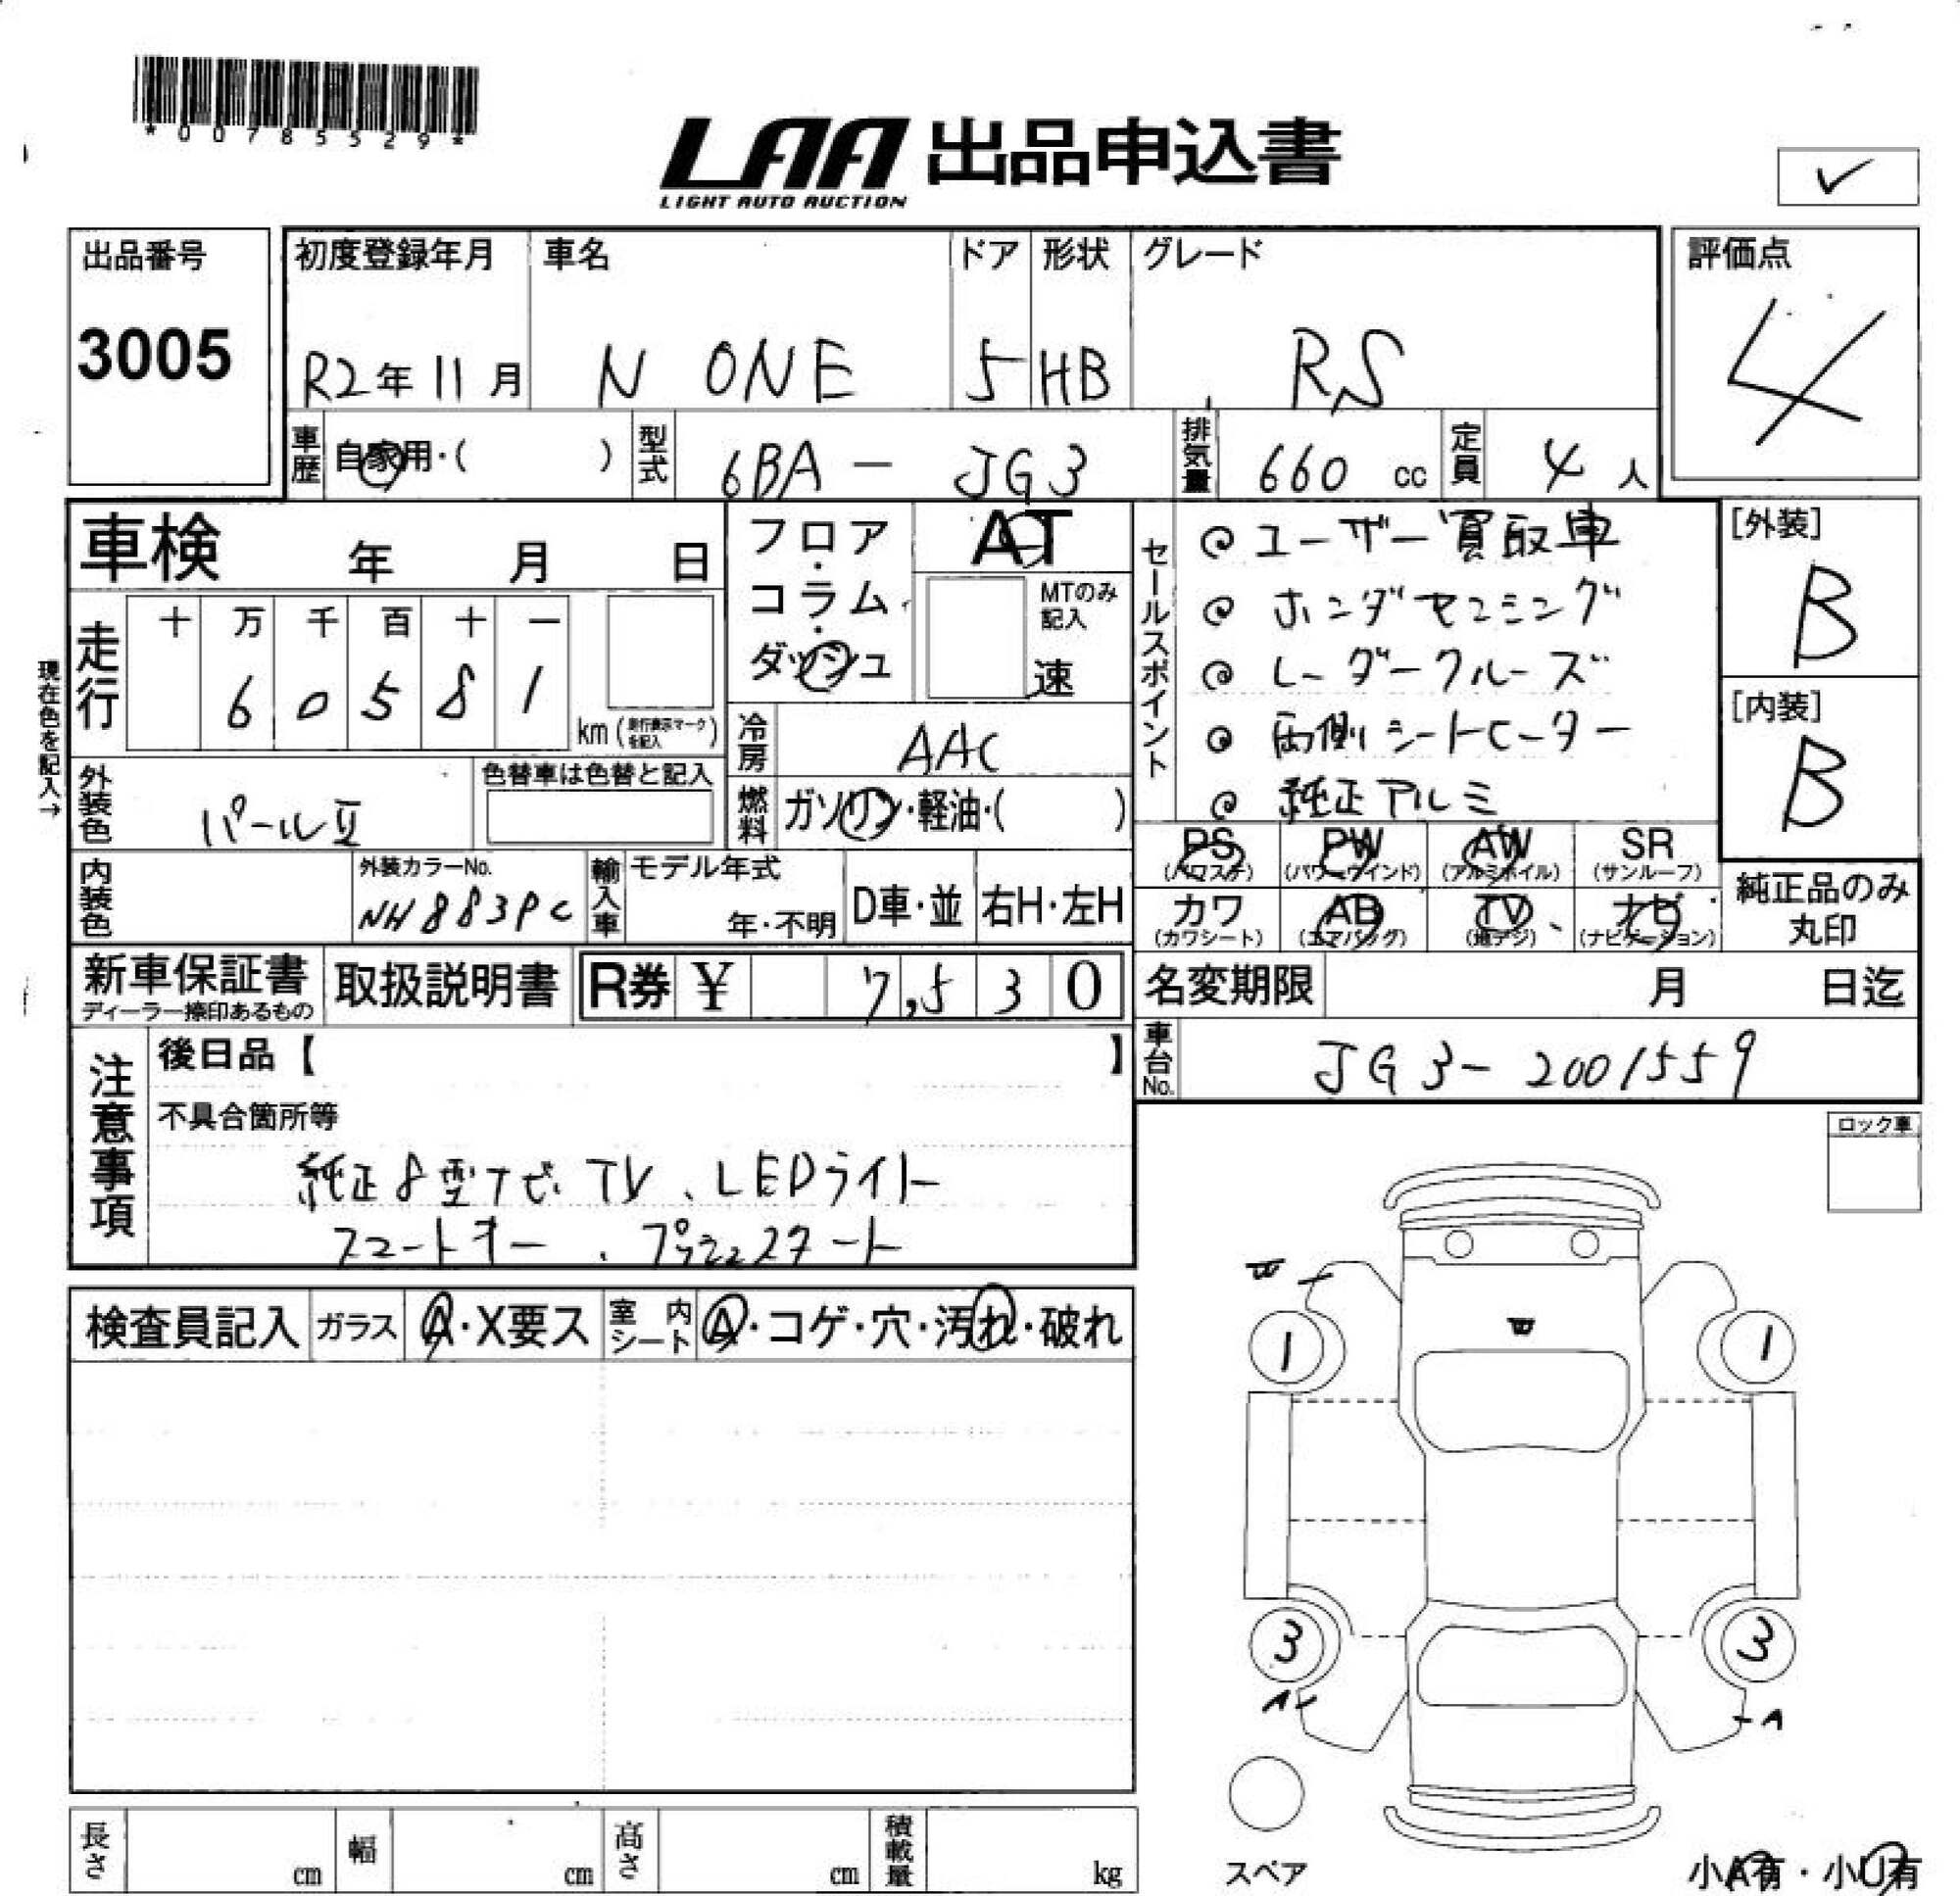 *00785529*
LAA 出品申込書
LIGHT AUTO AUCTION
✓
出品番号
3005
初度登録年月
R2年11月
車名
N ONE
ドア
5
形状
HB
グレード
RS
評価点
4
車歴
自家用・( )
型式
6BA - JG3
排気量
660 cc
定員
4人
車検 年 月 日
フロア・コラム・ダッシュ
AT
MTのみ記入
速
セールスポイント
ユーザー買取車
ホンダセンシング
レーダークルーズ
両側シートヒーター
純正アルミ
[外装]
B
[内装]
B
現在色を記入→
走行
十 万 千 百 十 一
6 0 5 8 1
km(走行表示マークを記入)
冷房
AAC
外装色
パールII
色替車は色替と記入
燃料
ガソリン・軽油・( )
PS
(パワステ)
PW
(パワーウインド)
AW
(アルミホイル)
SR
(サンルーフ)
カワ
(カワシート)
AB
(エアバッグ)
TV
(地デジ)
ナビ
(ナビゲーション)
純正品のみ
丸印
内装色
外装カラーNo.
NH883PC
輸入車
モデル年式
年・不明
D車・並
右H・左H
新車保証書
ディーラー捺印あるもの
取扱説明書
R券 ¥ 7,530
名変期限 月 日迄
車台No.
JG3-2001559
注意事項
後日品【 】
不具合箇所等
純正8型ナビ、TV、LEDライト
スマートキー、プッシュスタート
ロック車
検査員記入
ガラス
A・X要ス
室内シート
A・コゲ・穴・汚れ・破れ
W
W
1
1
3
3
A
A
スペア
小A有・小U有
長さ cm
幅 cm
高さ cm
積載量 kg